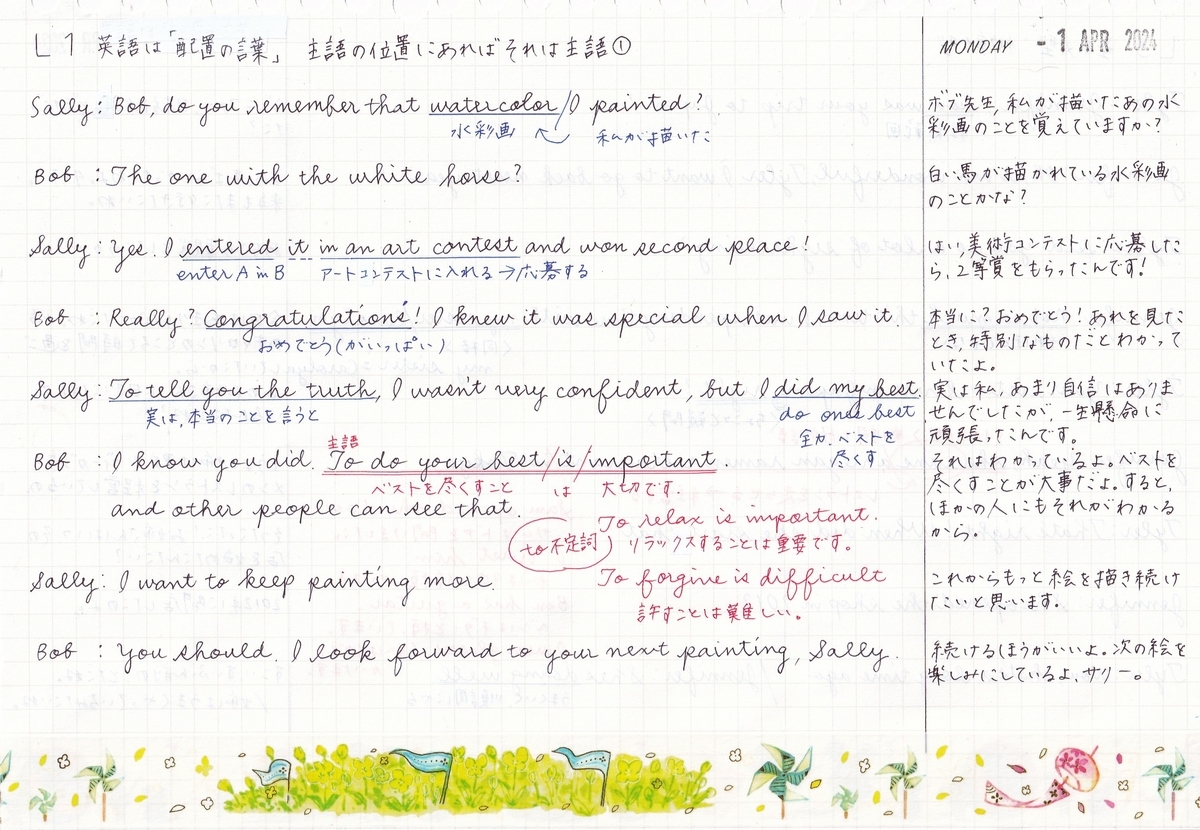 L1 英語は「配置の言葉」 主語の位置にあればそれは主語①
MONDAY -1 APR 2024
Sally: Bob, do you remember that watercolor/I painted?
水彩画 私が描いた
ボブ先生,私が描いたあの水
彩画のことを覚えていますか?
Bob : The one with the white horse?
白い馬が描かれている水彩画
のことかな?
Sally: Yes. I entered it in an art contest and won second place!
enter A in B アートコンテストに入れる→応募する
はい,美術コンテストに応募した
ら,2等賞をもらったんです!
Bob : Really? Congratulations! I knew it was special when I saw it.
おめでとう(がいっぱい)
本当に?おめでとう!あれを見た
とき,特別なものだとわかって
いたよ。
Sally: To tell you the truth, I wasn't very confident, but I did my best.
実は,本当のことを言うと
do one's best
全力,ベストを
尽くす
実は私,あまり自信はありま
せんでしたが,一生懸命に
頑張ったんです。
主語
Bob : I know you did. To do your best/is/important.
ベストを尽くすこと は 大切です
and other people can see that.
それはわかっているよ。ベストを
尽くすことが大事だよ。すると,
ほかの人にもそれがわかる
から。
to不定詞
To relax is important.
リラックスすることは重要です。
To forgive is difficult
許すことは難しい。
Sally: I want to keep painting more.
これからもっと絵を描き続け
たいと思います。
Bob : You should. I look forward to your next painting, Sally.
続けるほうがいいよ。次の絵を
楽しみにしているよ,サリー。